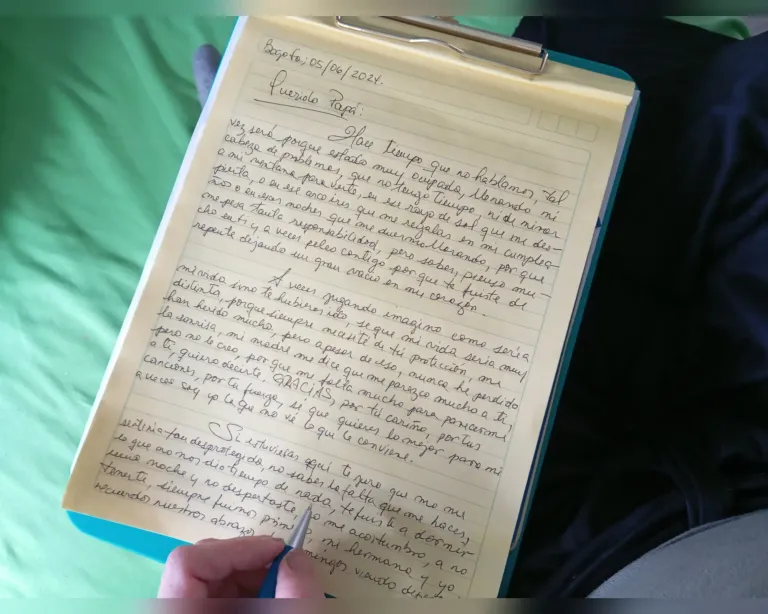 Bogota, 05/06/2024.
Querido Papá:
Hace tiempo que no hablamos, tal
vez será porque estado muy ocupada, llenando mi
cabeza de problemas, que no tengo tiempo, ni de mirar
a mi ventana para verte, en ese rayo de sol que me des-
pierta, o en ese arcoires que me regalas en mi cumplea-
ños o en esas noches que me duermo llorando, por que
me pesa tanta responsabilidad, pero sabes, pienso mu-
cho en ti y a veces peleo contigo por que te fuiste de
repente dejando un gran vacio en mi corazón.
A veces jugando imagino como seria
mi vida sino te hubieras ido, se que mi vida seria muy
distinta, porque siempre necesite de tú protección, me
han herido mucho, pero apesar de eso, nunca he perdido
la sonrisa, mi madre me dice que me parezco mucho a ti,
pero no le creo, por que me falta mucho para parecerme
a ti, quiero decirte. GRACIAS, por tú cariño, por tus
canciones, por tu fuerza, sé que quieres lo mejor para mi
a veces soy yo la que no vé lo que le conviene.
Si estuvieras aquí te juro que no me
sentiria tan desprotegida, no sabes la falta que me haces,
lo que no nos dio tiempo de nada, te fuiste a dormir
una noche y no despertaste, no me acostumbro, a no
tenerte, siempre fuimos mi hermano y yo
recuerdos nuestros abrazos domingos viendo